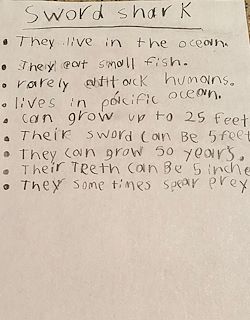 Sword shark
• They live in the ocean.
• They eat small fish.
• rarely attack humans.
• lives in pacific ocean.
• can grow up to 25 feet
• Their sword can Be 5 feet
• They can grow 50 years.
• Their Teeth can Be 5 inche
• They some times spear prey